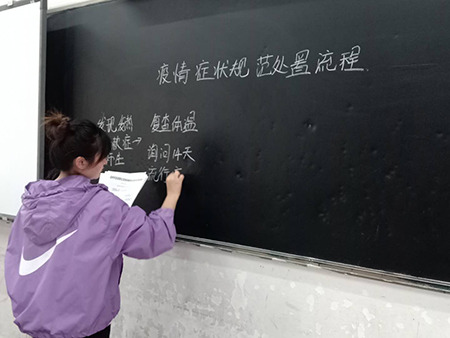 疫情症状规范处置流程
发现发热 复查体温
症→
询问14天